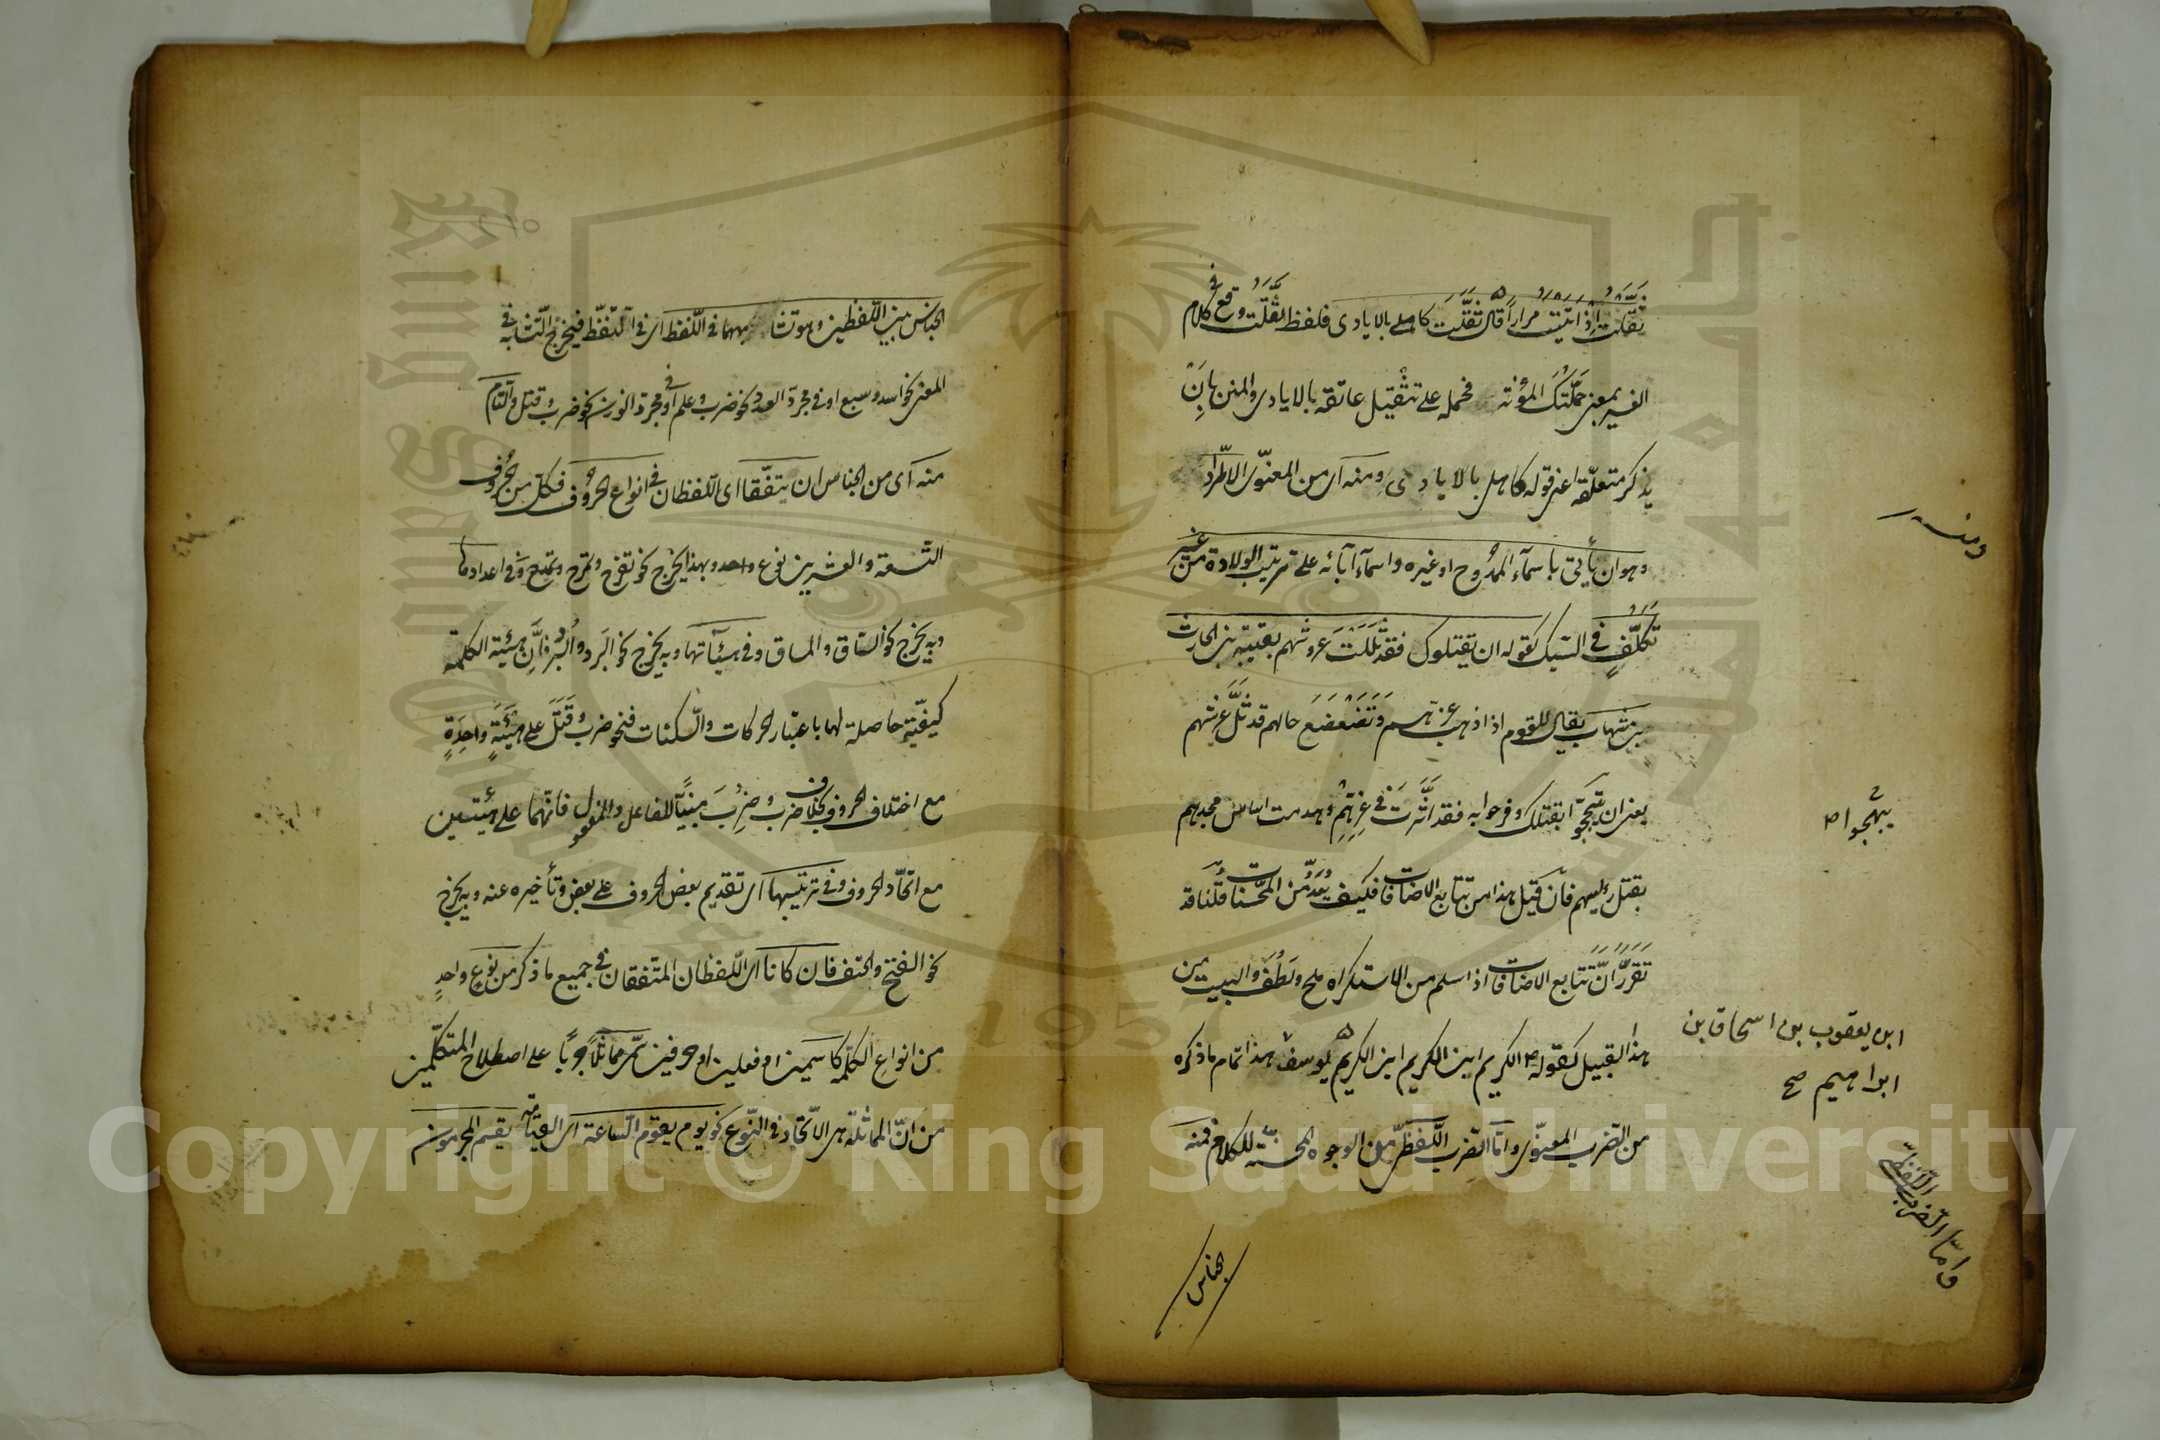 ثقّلت اذ اتيت مرارا قال ثقّلت كاهلى بالايادى فلفظ ثقّلت وقع فى كلام
الغير بمعنى حمّلتك المؤنة فحمله على تثقيل عاتقه بالايادى والمنن بان
يذكر متعلّقه اعنى قوله كاهلى بالايادى ومنه اى من المعنوى الاطّراد
وهو ان يأتى باسماء الممدوح او غيره واسماء آبائه على ترتيب الولادة من غير
تكلّف فى السبك كقوله ان يقتلوك فقد ثللت عروشهم بعتيبة بن الحارث
بن شهاب يقال للقوم اذا ذهب عزهم وتضعضع حالهم قد ثلّ عرشهم
يعنى ان تبجّحوا بقتلك وفرحوا به فقد اثّرت فى عزهم وهدمت اساس مجدهم
بقتل رئيسهم فان قيل هذا من تتابع الاضافات فكيف يعدّ من المحسّنات قلنا قد
تقرّر انّ تتابع الاضافات اذا سلم من الاستكراه ملح ولطف والبيت من
هذا القبيل كقوله الكريم ابن الكريم ابن الكريم يوسف هذا تمام ما ذكره
من الضرب المعنوى وامّا الضرب اللّفظى من الوجوه المحسنة للكلام فمنه
ومنه
يبجّحوا
ابن يعقوب بن اسحاق بن
ابراهيم صح
وامّا الضرب اللّفظى
الجناس
الجناس بين اللّفظين وهو تشابههما فى اللّفظ اى فى التلفّظ فيخرج التشابه فى
المعنى نحو اسد وسبع او فى مجرد العدد نحو ضرب وعلم او فى مجرد الوزن نحو ضرب وقتل والتام
منه اى من الجناس ان يتّفقا اى اللّفظان فى انواع الحروف فكل من حروف
التسعة والعشرين نوع واحد وبهذا يخرج نحو يفرح ويمرح وفى اعدادها
وبه يخرج نحو الساق والمساق وفى هيئآتها وبه يخرج نحو البرد والبرد فانّ هيئة الكلمة
كيفيّة حاصلة لها باعتبار الحركات والسّكنات فنحو ضرب وقتل على هيئة واحدة
مع اختلاف الحروف بخلاف ضرب وضرب مبنيّا للفاعل والمفعول فانّهما على هيئتين
مع اتحاد الحروف وفى ترتيبها اى تقديم بعض الحروف على بعض وتأخيره عنه وبه يخرج
نحو الفتح والحتف فان كانا اى اللّفظان المتّفقان فى جميع ما ذكر من نوع واحد
من انواع الكلمة كاسمين او فعلين او حرفين سمّى مماثلا جريا على اصطلاح المتكلّمين
من انّ المماثلة هى الاتّحاد فى النّوع نحو يوم يقوم السّاعة اى القيامة يقسم المجرمون
Copyright © King Saud University
King Saud University
1957